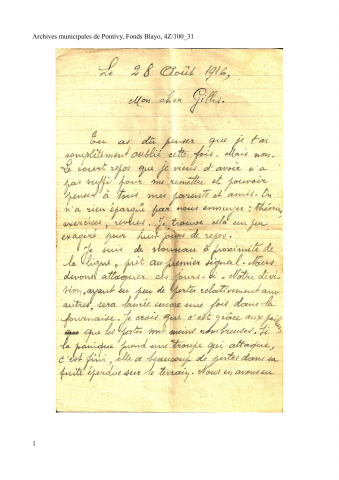 Archives municipales de Pontivy, Fonds Blayo, 4Z/100_31
Le 28 Août 1916,
Mon cher Gilles.
Tu as dû penser que je t'ai
complètement oublié cette fois. Mais non.
Le court repos que je viens d'avoir n'a
pas suffi pour me remettre et pouvoir
penser à tous mes parents et amis. On
n'a rien épargné pour nous ennuyer : théories,
exercices, revues. Je trouve cela un peu
exagéré pour huit jours de repos.
Je suis de nouveau à proximité de
la ligne, prêt au premier signal. Nous
devons attaquer ces jours-ci. Notre divi-
sion, ayant eu peu de pertes relativement aux
autres, sera lancée encore une fois dans la
fournaise. Je crois que c'est grâce aux
que les pertes sont moins nombreuses. Si
la panique prend une troupe qui attaque,
c'est fini, elle a beaucoup de pertes dans sa
fuite éperdue sur le terrain. Nous en avons eu
1